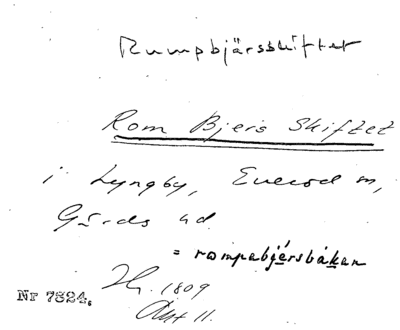 Rumpbjärsskiftet
Rom Bjers Skiftet
i Lyngby, Everöd sn,
Gärds hd.
= rompabjersbakan
Nr 7824.
1809
Akt 11.